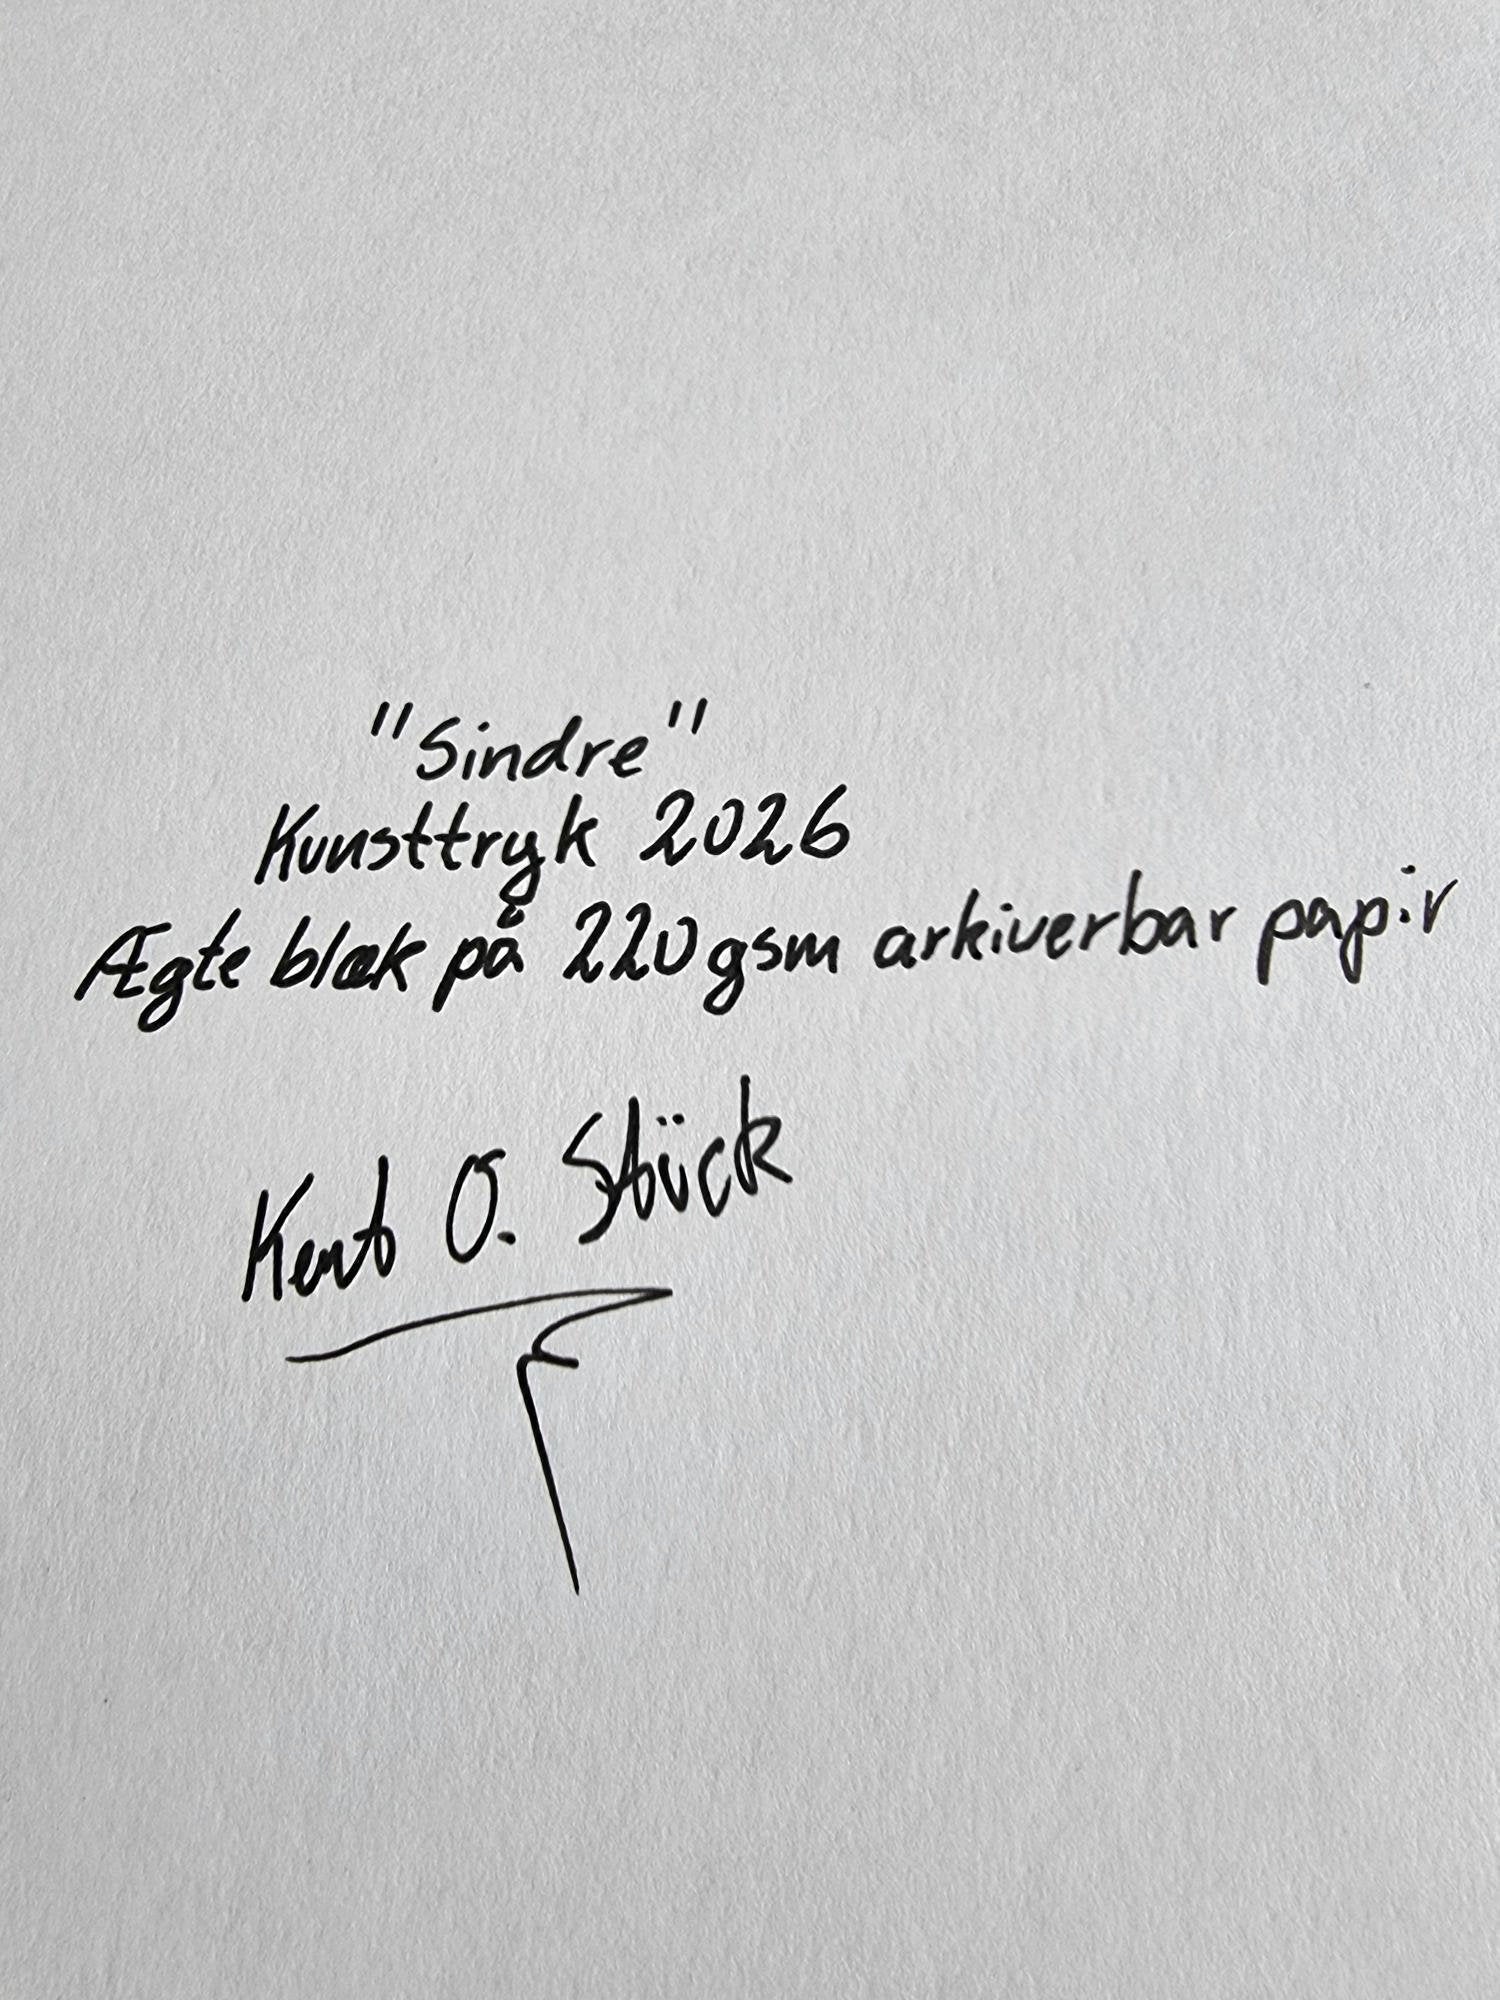 "Sindre"
Kunsttryk 2026
Ægte blæk på 220gsm arkiverbar papir
Kent O. Stück